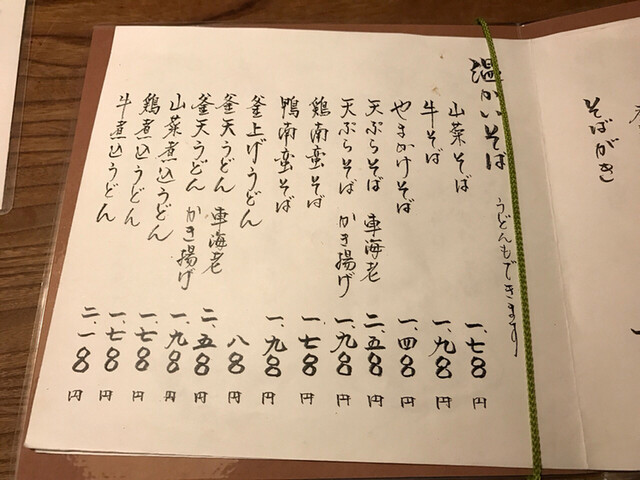 そばがき
温かいそば うどんもできます
山菜そば 一、七〇〇円
牛そば 一、九〇〇円
やまかけそば 一、四〇〇円
天ぷらそば 車海老 二、五〇〇円
天ぷらそば かき揚げ 一、九〇〇円
鶏南蛮そば 一、七〇〇円
鴨南蛮そば 一、九〇〇円
釜上げうどん 八〇〇円
釜天うどん 車海老 二、五〇〇円
釜天うどん かき揚げ 一、九〇〇円
山菜煮込うどん 一、七〇〇円
鶏煮込うどん 一、七〇〇円
牛煮込うどん 二、一〇〇円